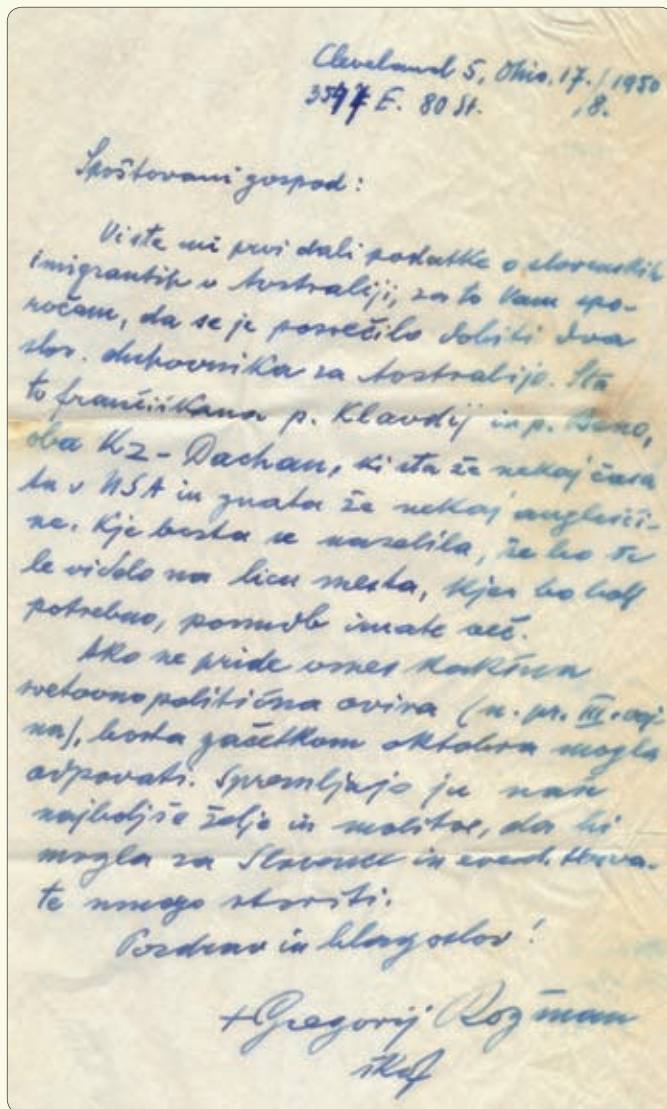 Cleveland 5, Ohio, 17./ 1950
3547 E. 80 St. /8.
Spoštovani gospod:
Vi ste mi prvi dali podatke o slovenskih
imigrantih v Avstraliji, za to Vam spo-
ročam, da se je posrečilo dobiti dva
slov. duhovnika za Avstralijo. Sta
to frančiškana p. Klavdij in p. Beno,
oba KZ-Dachau, ki sta že nekaj časa
tu v USA in znata že nekaj anglešči-
ne. Kje bosta se naselila, že bo te
le videlo na licu mesta, kjer bo bolj
potrebno, ponudb imate več.
Ako ne pride vmes kakšna
svetovnopolitična ovira (n. pr. III. voj-
na), bosta začetkom oktobra mogla
odpovati. Spremljajo ju naše
najboljše želje in molitve, da bi
mogla za Slovence in event. Hrva-
te mnogo storiti.
Pozdrav in blagoslov!
+Gregorij Rožman
škof